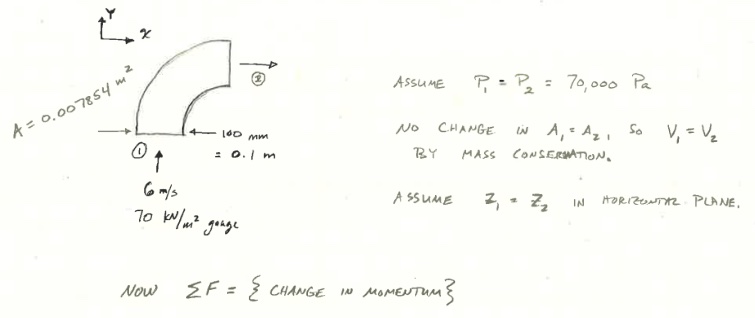 Y
x
A = 0.007854 m²
②
① 100 mm
= 0.1 m
6 m/s
70 kN/m² gauge
ASSUME P₁ = P₂ = 70,000 Pa
NO CHANGE IN A₁ = A₂, SO V₁ = V₂
BY MASS CONSERVATION.
ASSUME Z₁ = Z₂ IN HORIZONTAL PLANE.
NOW ΣF = { CHANGE IN MOMENTUM }